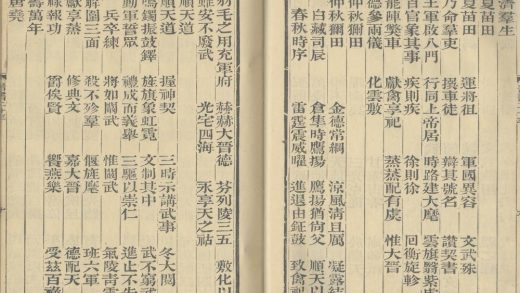 濟羣生
夏苗田
夏苗田　運將徂　軍國異容　文武殊
乃命羣吏　撰車徒　辯其號名　讚契書
王軍啟八門　行同上帝居　時路建大麾　雲旗翳紫
百官象其事　疾則疾　徐則徐　回衡旋軫
罷陣獘車　獻禽享祀　蒸蒸配有虞　惟大晉
德參兩儀　化雲敷
仲秋獮田
仲秋獮田　金德常綱　涼風清且厲　凝露結
白藏司辰　倉隼時鷹揚　鷹揚猶尚父　順天以
春秋時序　雷霆震威曜　進退由鉦鼓　致禽
羽毛之用充軍府　赫赫大晉德　芬列陵三五　敷化以
雖安不廢武　光宅四海　永享天之祜
順天道
順天道　握神契　三時示講武事　冬大閱
鳴鐲振鼓鐸　旌旗象虹霓　文制其中　武不窮武
動軍誓眾　禮成而義舉　三驅以崇仁　進止不失
兵卒練　將如闞武　惟闞武　氣陵青雲
解圍三面　殺不殄羣　偃旌麾　班六軍
獻享蒸　修典文　嘉大晉　德配天
祿報功　爵俊賢　饗燕樂　受茲百
壽萬年
唐堯